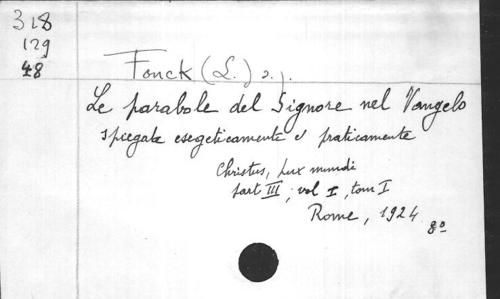 318
129
48
Fonck (L.) s.j.
Le parabole del Signore nel Vangelo
spiegate esegeticamente e praticamente
Christus, Lux mundi
part III, vol I, tom I
Rome, 1924
8º